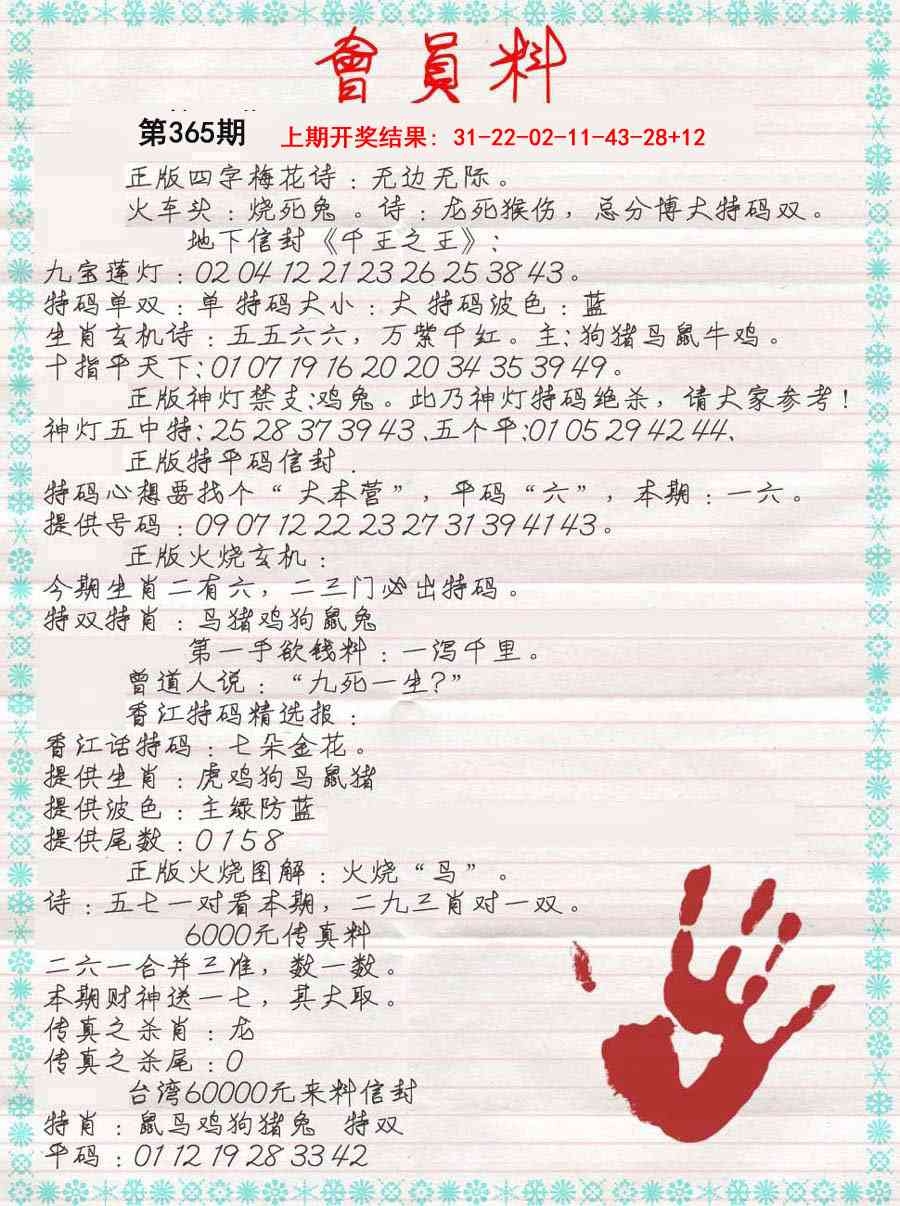 會員料
第365期 上期开奖结果: 31-22-02-11-43-28+12
正版四字梅花诗：无边无际。
火车头：烧死兔。诗：龙死猴伤，总分博大特码双。
地下信封《千王之王》：
九宝莲灯：02 04 12 21 23 26 25 38 43。
特码单双：单 特码大小：大 特码波色：蓝
生肖玄机诗：五五六六，万紫千红。主：狗猪鸟鼠牛鸡。
十指平天下：01 07 19 16 20 20 34 35 39 49。
正版神灯禁支:鸡兔。此乃神灯特码绝杀，请大家参考！
神灯五中特：25 28 37 39 43、五个平:01 05 29 42 44、
正版特平码信封．
特码心想要找个“大本营”，平码“六”，本期：一六。
提供号码：09 07 12 22 23 27 31 39 41 43。
正版火烧玄机：
今期生肖二有六，二三门必出特码。
特双特肖：鸟猪鸡狗鼠兔
第一手欲钱料：一泻千里。
曾道人说：“九死一生？”
香江特码精选报：
香江话特码：七朵金花。
提供生肖：虎鸡狗鸟鼠猪
提供波色：主绿防蓝
提供尾数：0 1 5 8
正版火烧图解：火烧“鸟”。
诗：五七一对看本期，二九三肖对一双。
6000元传真料
二六一合并三准，数一数。
本期财神送一七，其大取。
传真之杀肖：龙
传真之杀尾：0
台湾60000元来料信封
特肖：鼠鸟鸡狗猪兔 特双
平码：01 12 19 28 33 42